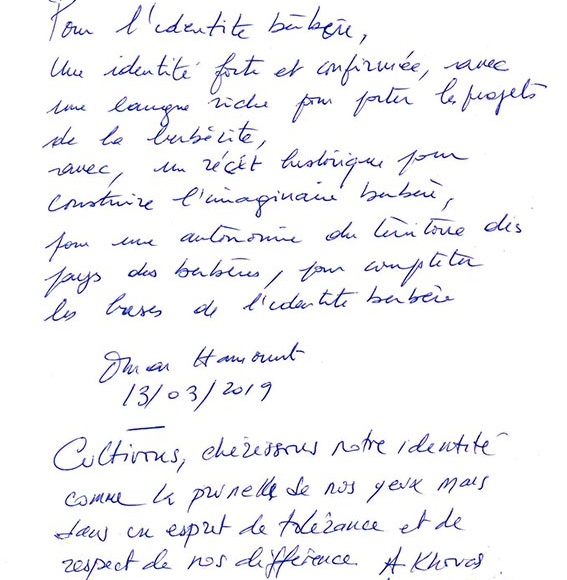 Pour l'identite berbère,
Une identité forte et confirmée, avec
une langue riche pour porter les projets
de la berbérité,
avec, un récit historique pour
construire l'imaginaire berbère,
pour une autonomie du térritoire des
pays des berbères, pour completer
les bases de l'identité berbère
Omar Hamourit
13/03/2019
Cultivons, chérissons notre identité
comme la prunelle de nos yeux mais
dans un esprit de tolérance et de
respect de nos différence A Khouas